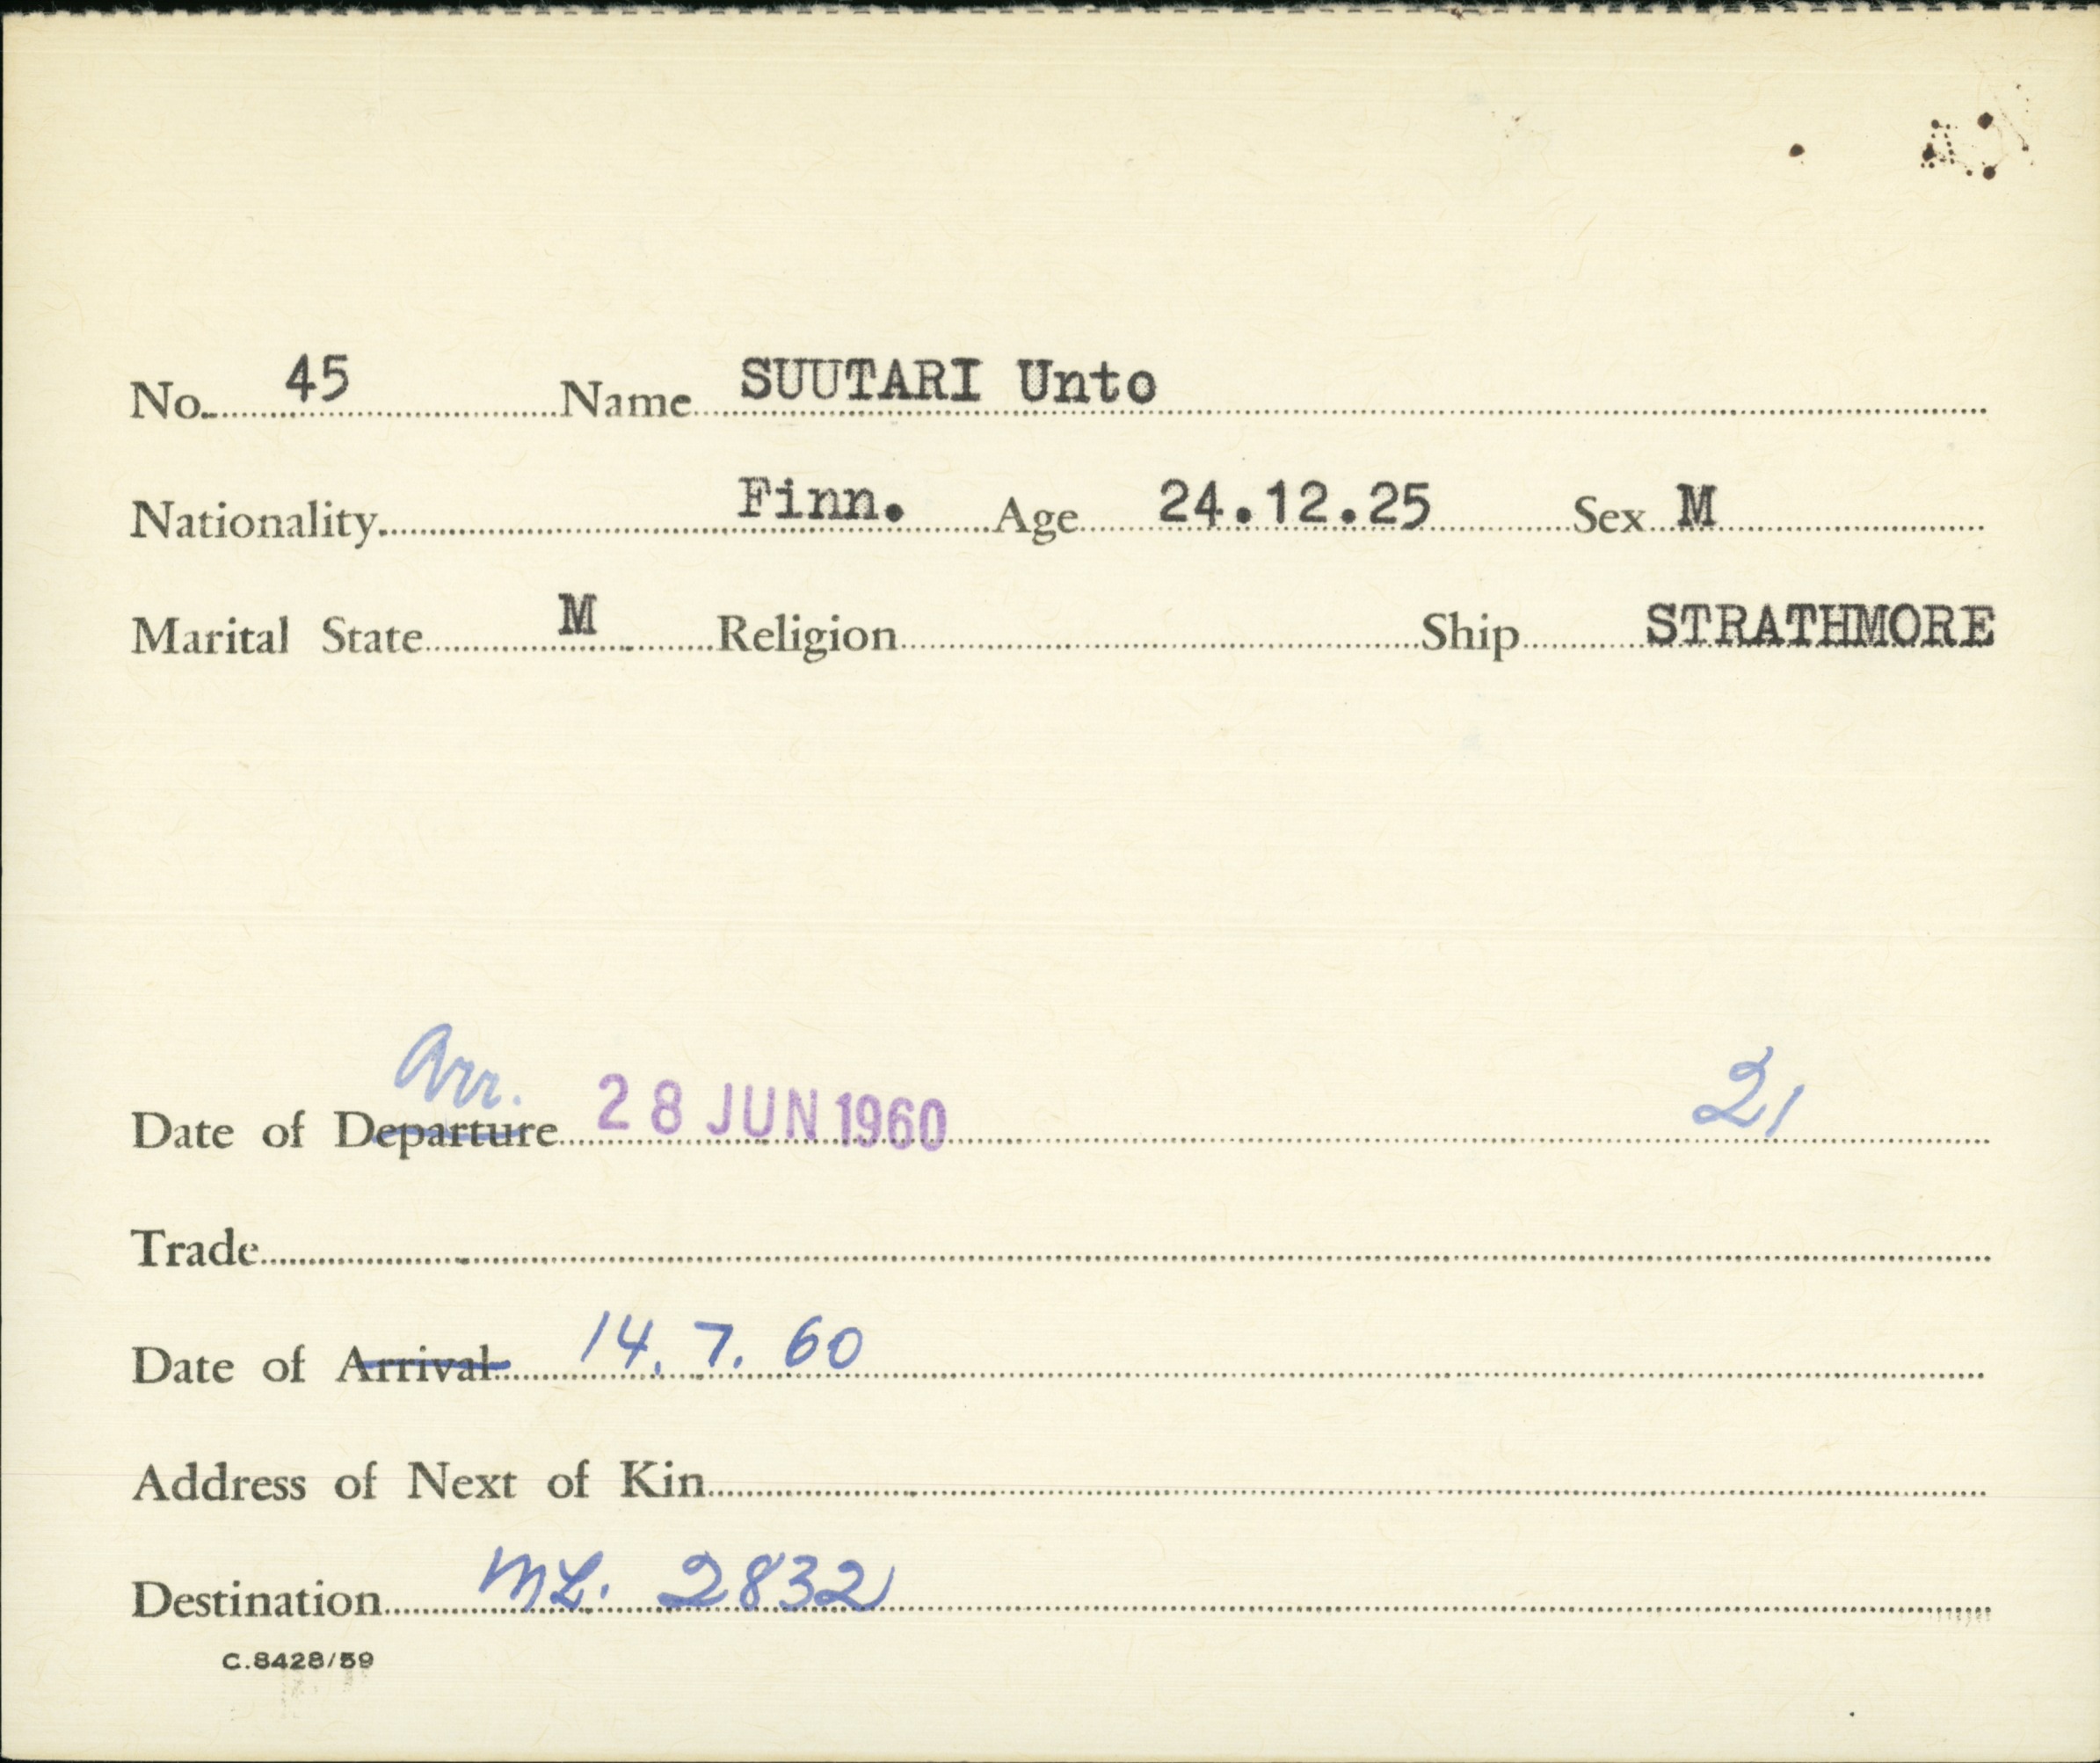 No. 45 Name SUUTARI Unto
Nationality Finn. Age 24.12.25 Sex M
Marital State M Religion Ship STRATHMORE
Arr.
Date of Departure 28 JUN 1960 21
Trade
Date of Arrival 14.7.60
Address of Next of Kin
Destination ML. 2832
C.8428/59